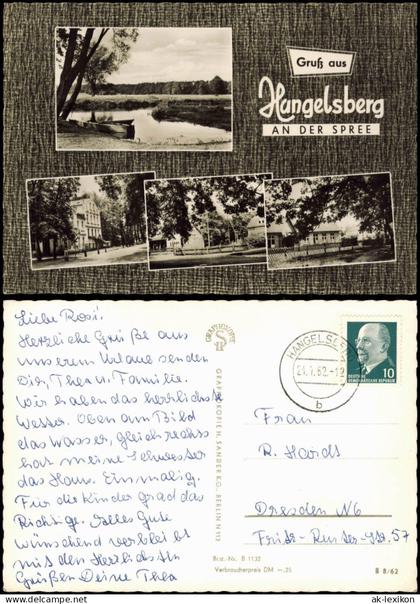 Gruß aus
Hangelsberg
AN DER SPREE
Liebe Rosi!
Herzliche Grüße aus
unserem Urlaub senden
Dir, Thea u. Familie.
Wir haben das herrlichste
Wetter. Oben am Bild
das Wasser, gleich rechts
hat meine Schwester
das Haus. Einmalig.
Für die Kinder grad das
Richtige. Alles Gute
wünschend verbleibt
mit den herzlichsten
Grüßen Deine Thea
GRAPHOKOPIE
GRAPHOKOPIE H. SANDER KG, BERLIN N 113
HANGELSBERG
24.7.62.-12
b
DEUTSCHE
DEMOKRATISCHE REPUBLIK
10
Frau
R. Hards
Dresden N6
Fritz-Reuter-Str. 57
Best.-Nr. B 1132
Verbraucherpreis DM –,25
B 8/62
© ak-ansichtskarten.de
ak-lexikon.com